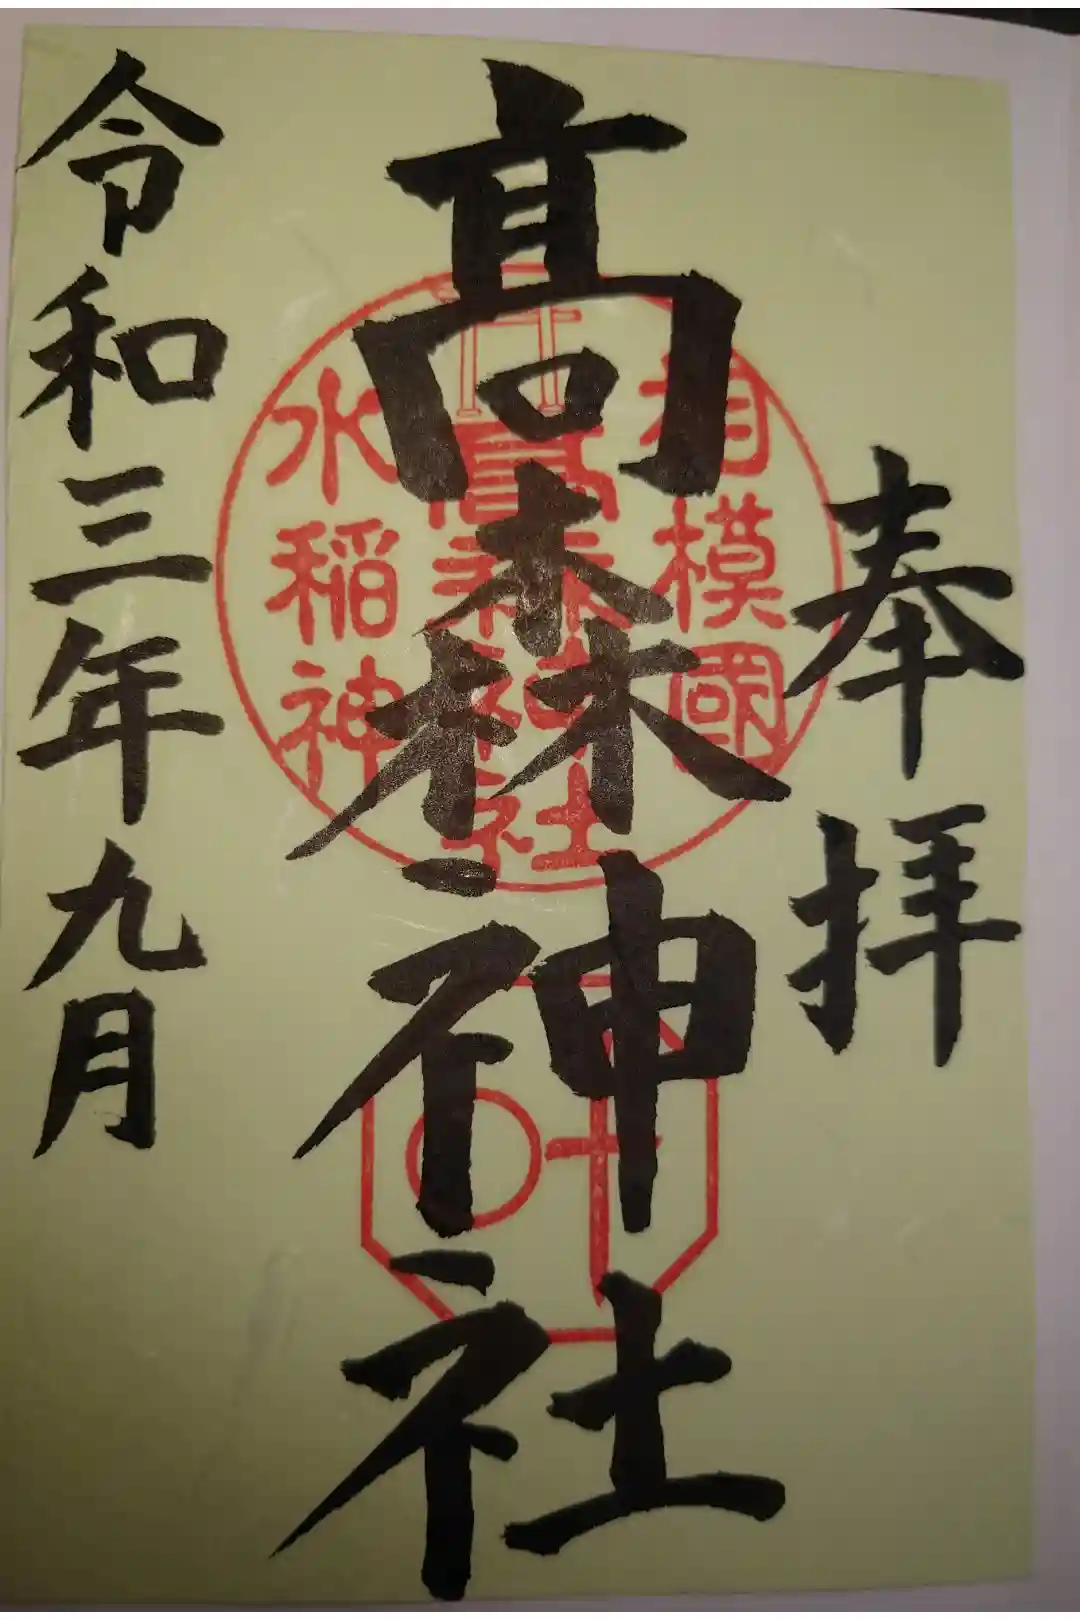 奉拝
髙森神社
令和三年九月
相模國
髙森神社
水稲神
叶